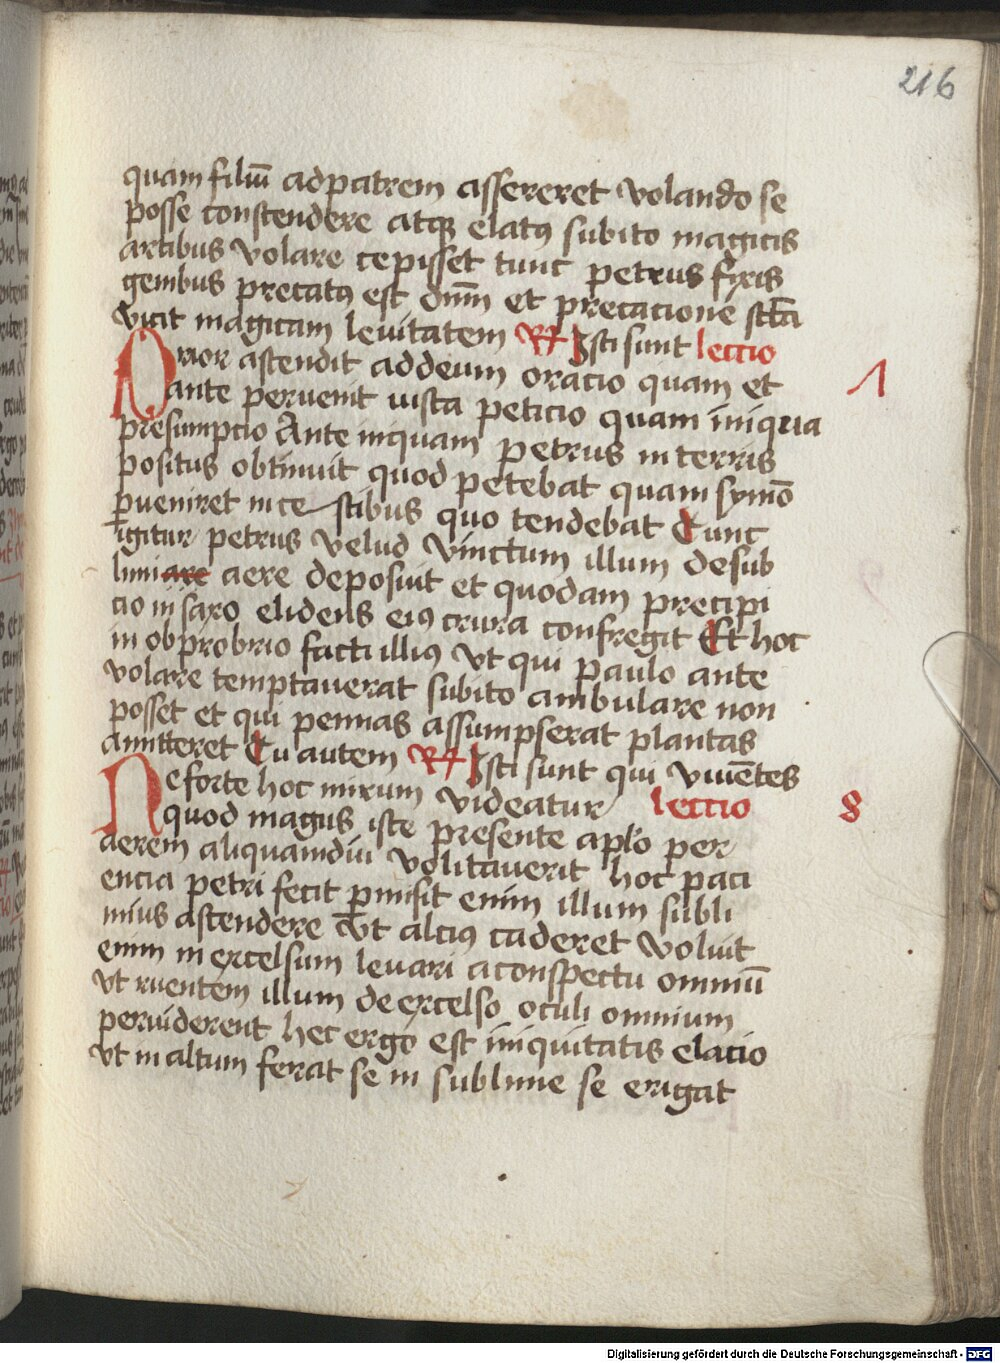 216
quam filiū ad patrem assereret volando se
posse constendere atqꝫ elatꝰ subito magicis
artibus volare cepisset tunc petrus fixis
genibus precatꝰ est dn̄m et precacione sc̄tā
vicit magicam levitatem R Isti sunt lectio
Prior ascendit ad deum oracio quam et 7
ante pervenit iusta peticio quam iniqua
presumpcio Ante inquam petrus in terris
positus obtinuit quod petebat quam symō
ꝑveniret in ce stibus quo tendebat Tunc
igitur petrus velud vinctum illum de sub
limi are aere deposuit et quodam precipi
cio in saxo elidens eiꝰ crura confregit Et hoc
in obprobrio facti illiꝰ vt qui paulo ante
volare temptaverat subito ambulare non
posset et qui pennas assumpserat plantas
amitteret Tu autem R Isti sunt qui viuētes
Ne forte hoc mirum videatur lectio 8
quod magus iste presente apl̄o per
aerem aliquamdiu volitaverit hoc paci
encia petri fecit ꝑmisit enim illum subli
mius ascendere vt alciꝰ caderet voluit
enim in excelsum levari a conspectu omniū
vt ruentem illum de excelso oculi omnium
perviderent hec ergo est iniquitatis elacio
vt in altum ferat se in sublime se erigat
Digitalisierung gefördert durch die Deutsche Forschungsgemeinschaft - DFG